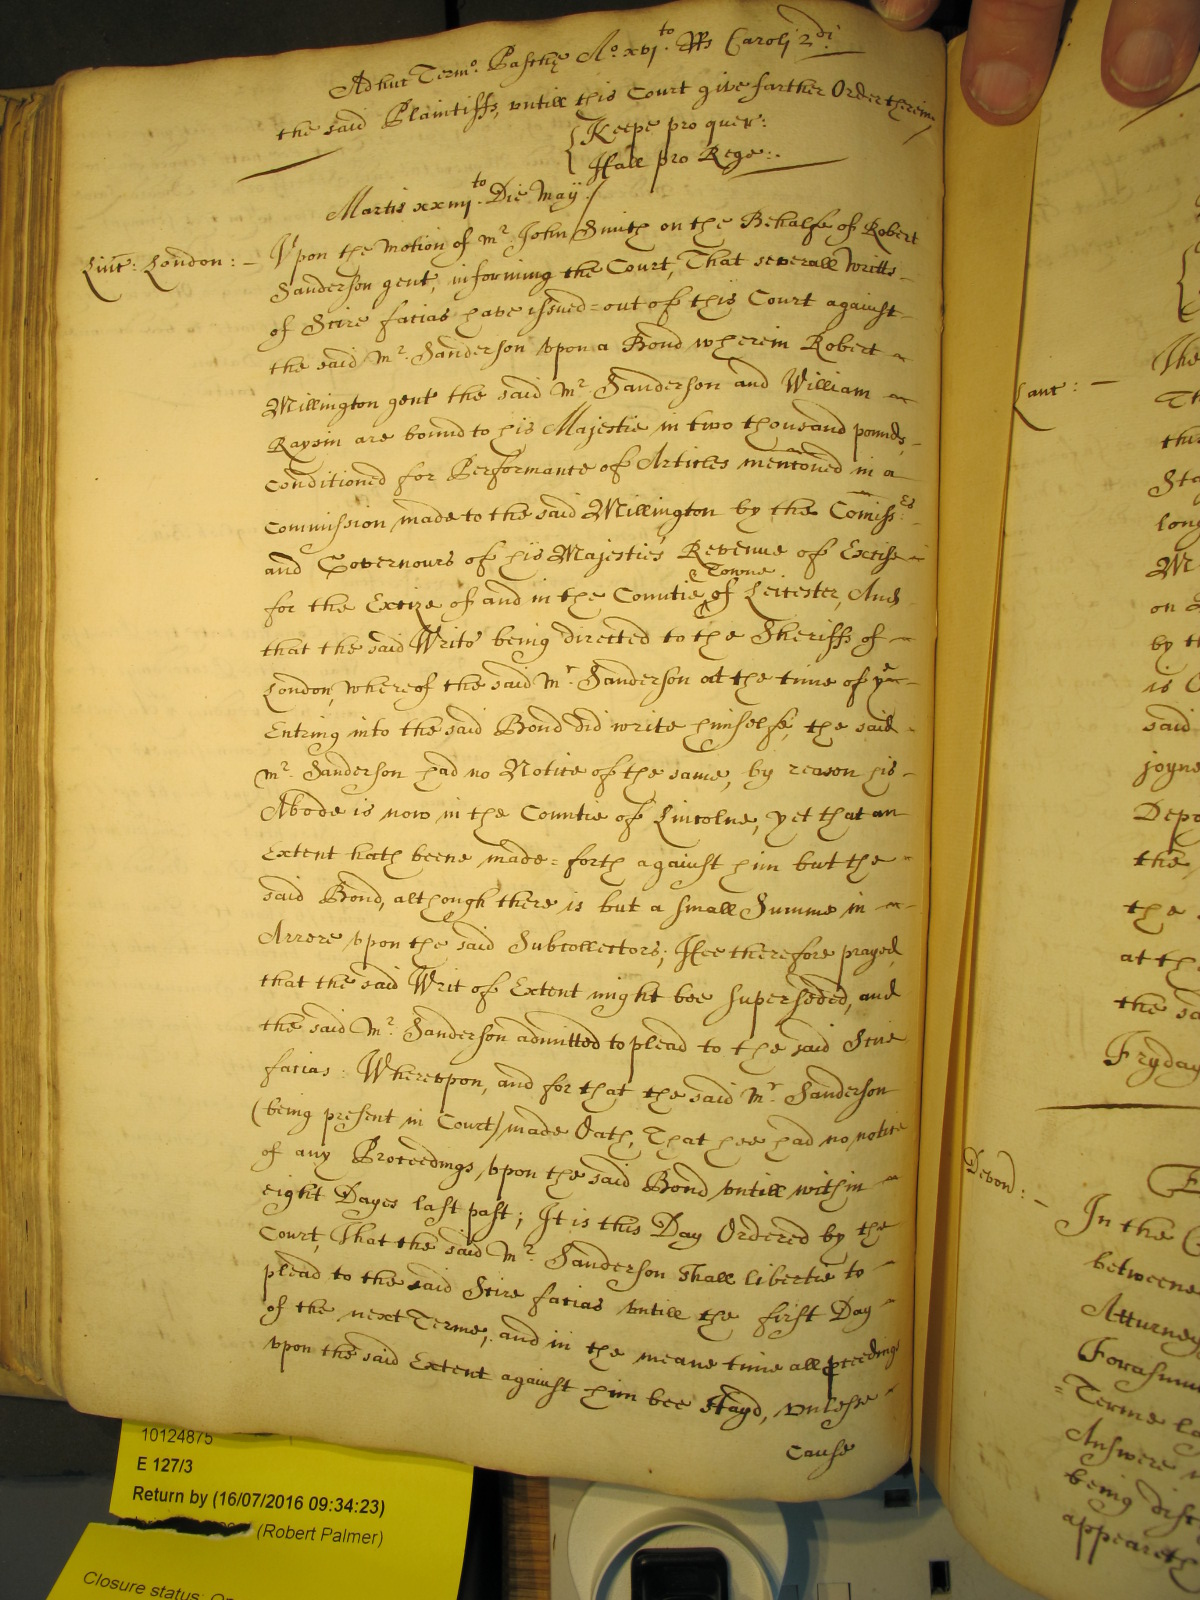 Adhuc Termo. Paschę Ao. xvjto. RRs Caroli 2di.
the said Plaintiffs, vntill this Court give farther Order therein
Keepe pro quer:
Hall pro Rege:.
Martis xxiiijto. Die Maij:/
Linc: London: - Vpon the motion of mr. John Smith on the Behalfe of Robert
Sanderson gent, informing the Court, That severall Writts
of Scire facias have issued=out of this Court against
the said mr. Sanderson vpon a Bond wherein Robert
Millington gent the said mr. Sanderson and William
Raysin are bound to his Majestie in two thousand pounds,
Conditioned for Performance of Articles mentoned in a
Commission, made to the said Millington by the Comissrs
and Governours of his Majesties Revenue of Excise
for the Excize of and in the Countie, Towne of Leicester, And
that the said Writs being directed to the Sheriffs of
London, whereof the said mr. Sanderson at the time of ye
Entring into the said Bond did write himselfe, the said
mr. Sanderson had no Notice of the same, by reason his
Abode is now in the Countie of Lincolne, yet that an
Extent hath beene made=forth against him but the
said Bond, although there is but a small Summe in
Arrere vpon the said Subcollectors; Hee therefore prayed,
that the said Writ of Extent might bee superseded, and
the said mr. Sanderson admitted to plead to the said Scire
facias: Wherevpon, and for that the said mr. Sanderson
(being present in Court) made Oath, That hee had no notice
of any Proceedings, vpon the said Bond vntill within
eight Dayes last past; It is this Day Ordered by the
Court, That the said mr. Sanderson shall libertie to
plead to the said Scire facias vntill the first Day
of the next Terme, and in the meane time all pceedings
vpon the said Extent against him bee stayd, vnlesse
cause
10124875
E 127/3
Return by (16/07/2016 09:34:23)
(Robert Palmer)
Closure status:
Lanc: -
the
long
on
by th
is
said
joyne
Depo
the
the
at th
the sa
Fryday
Devon: -
In the
betweene
Atturney
Forasmu
Terme la
Answere
being dist
appeareth